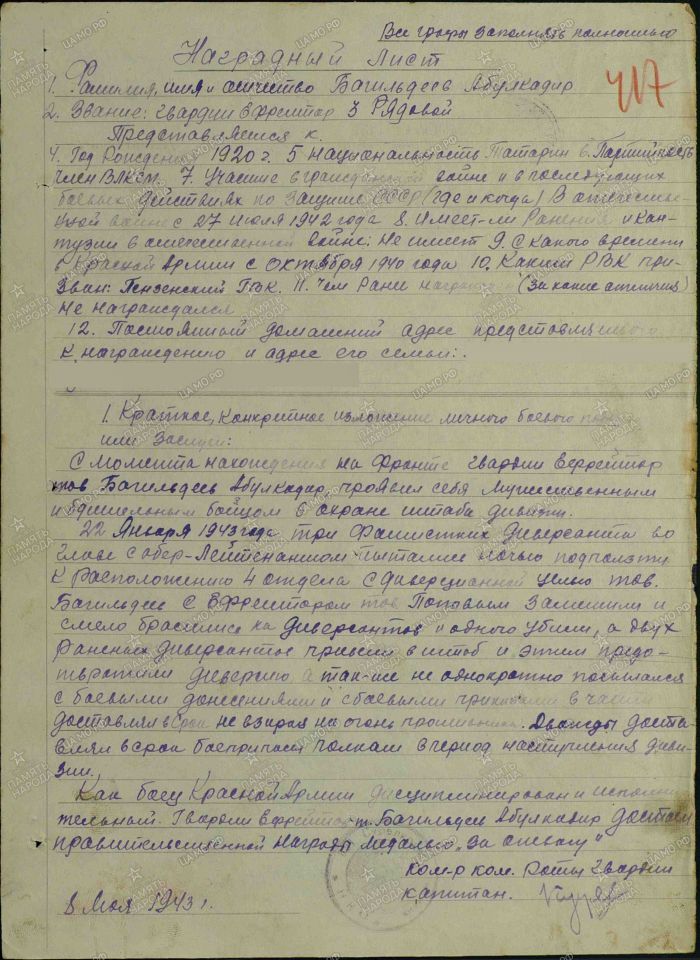 Все графы заполнять полностью
Наградный Лист
417
1. Фамилия, имя и отчество Багильдеев Абулкадир
2. Звание: гвардии ефрейтор 3 Рядовой
Представляется к
4. Год Рождения 1920 г. 5 национальность Татарин 6. Партийность
член ВЛКСМ. 7. Участие в гражданской войне и в последующих
боевых действиях по защите СССР (где и когда) В отечествен-
ной войне с 27 июля 1942 года 8. Имеет-ли Ранения и кон-
тузии в отечественной войне: Не имеет 9. С какого времени
в Красной Армии с октября 1940 года 10. Каким РВК при-
зван: Пензенский ГВК. 11. Чем Ранее награжден (за какие отличия)
Не награждался
12. Постоянный домашний адрес представляемого
к награждению и адрес его семьи:
1. Краткое, конкретное изложение личного боевого подвига
или заслуги:
С момента нахождения на Фронте гвардии ефрейтор
тов Багильдеев Абулкадир проявил себя мужественным
и бдительным бойцом в охране штаба дивизии.
22 Января 1943 года три Фашистких диверсанта во
главе с обер-лейтенантом пытались ночью подползти
к Расположению 4 отдела с диверсионной целью тов.
Багильдеев с ефрейтором тов Поповым заметили и
смело бросились на диверсантов и одного убили, а двух
Раненых диверсантов привели в штаб и этим предо-
твратили диверсию а так-же не однократно посылался
с боевыми донесениями и с боевыми приказами в части
доставлял в срок не взирая на огонь противника. Дважды доста-
влял в срок боеприпасы полкам в период наступления диви-
зии.
Как боец Красной Армии дисциплинирован и исполни-
тельный. Гвардии ефрейтор т. Багильдеев Абулкадир достоин
правительственной Награды медалью "За отвагу"
ком-р ком. Роты гвардии
капитан.
8 Мая 1943 г.
ПАМЯТЬ НАРОДА
ЦАМО.РФ